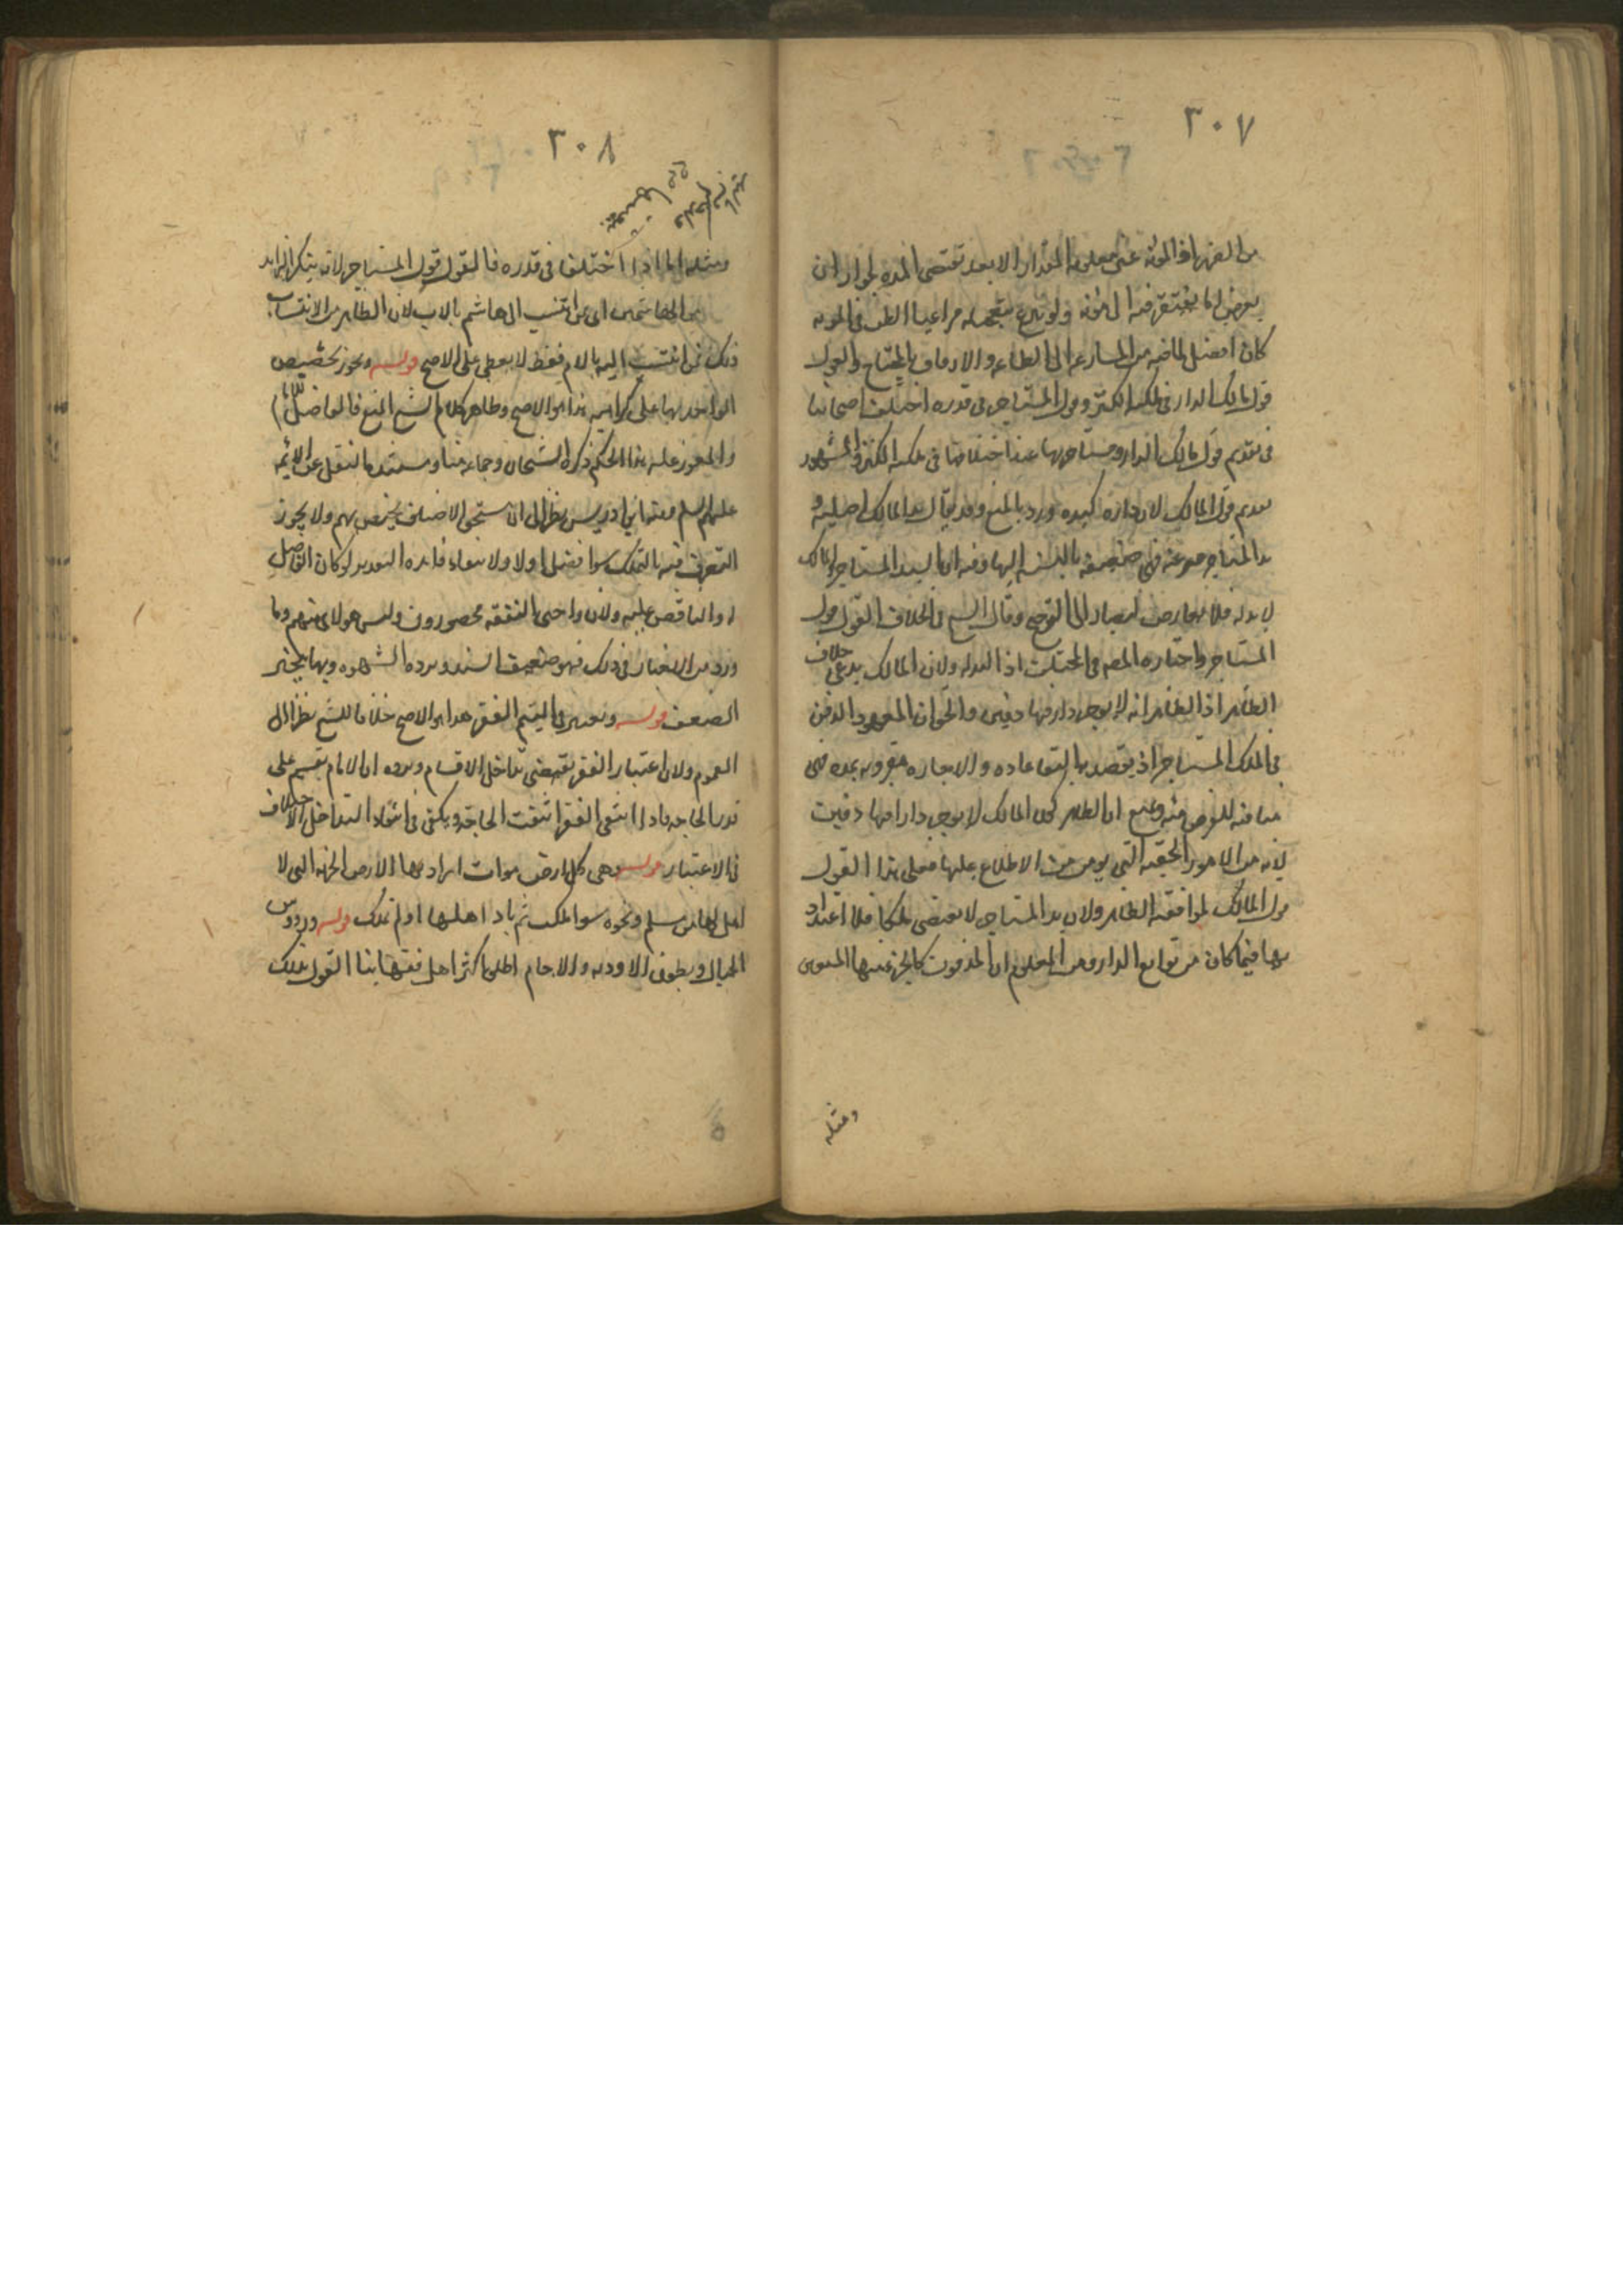 ٣٠٧
من الفقهاء المؤنه غير معلومه المقدار الا بعد تقتضى المده لجواز ان
يعرض لها ما يفتقر فيه الى مؤنه ولو تبرع بتعجيله مراعيا الظن فى المونه
كان افضل لما فيه من المسارعه الى الطاعه والارفاق بالمحتاج والقول
قول مالك الدار فى ملك الكنز وقول المستاجر فى قدره اختلف اصحابنا
فى تقديم قول مالك الدار ومستاجرها عند اختلافهما فى ملكيه الكنز والمشهور
تقديم قول المالك لان داره كيده ورد بالمنع وقد يقال يد المالك اصليه و
يد المستاجر فرعيه فهى ضعيفه بالنسبه اليها وفيه ان اليد للمستاجر والمالك
لا يد له فلا تعارض ليصار الى الترجيح وقال الشيخ فى الخلاف القول قول
المستاجر واختاره المصنف فى المختلف اذ اليد له ولان المالك يدعى خلاف
الظاهر اذ الظاهر انه لا يوجر دارا فيها دفين والحق ان المعهود الدفن
فى الملك المستاجر اذ يقصد بها البقا عاده والاجاره مقرونه بمده فهى
منافيه للغرض منه ويمنع ان الظاهر كون المالك لا يوجر دارا فيها دفين
لانه من الامور الخفيه التى يومن من الاطلاع عليها فعلى هذا القول
قول المالك لموافقته الظاهر ولان يد المستاجر لا تقتضى ملكا فلا اعتداد
بها فيما كان من توابع الدار ومن المعلوم ان المدفون كالجزء منها
ومثله
٣٠٨
ومثله اما اذا اختلفا فى قدره فالقول قول المستاجر لانه ينكر الزايد
من الهاشميين اى ممن انتسب الى هاشم بالاب لان الظاهر من الانتساب
ذلك فمن انتسب اليه بالام فقط لا يعطى على الاصح قوله ويجوز تخصيص
الواحد بها على كراهيه هذا هو الاصح وظاهر كلام الشيخ المنع قال الفاضل
والمعوز عليه هذا الحكم ذكره الشيخان وجماعه منا ومستنده النقل عن الائمه
عليهم السلم ومنعه ابن ادريس نظرا الى ان مستحق الاصناف يختص بهم ولا يجوز
التصرف فيه بالتملك سوا فضل او لا ولانتفاء فايده التقدير لو كان الفاضل
له والناقص عليه ولان واجبى النفقه محصورون وليس هولاء منهم وما
ورد من الاخبار فى ذلك فهو ضعيف السند ويرده الشهره وبها ينجبر
الضعف قوله ويعتبر فى اليتيم الفقر هذا هو الاصح خلافا للشيخ نظرا الى
العموم ولان اعتبار الفقر يقتضى تداخل الاقسام ويرده ان الامام يقسم على
قدر الحاجه فاذا انتفى الفقر انتفت الحاجه ويكفى فى انتفاء التداخل الاختلاف
فى الاعتبار قوله وهى كل ارض موات اراد بها الارض الخربه التى لا
اهل لها من مسلم ونحوه سوا ملكت ثم باد اهلها او لم تملك قوله ورووس
الجبال وبطون الاوديه والاجام اطلق اكثر اهل فقهائنا القول بملك